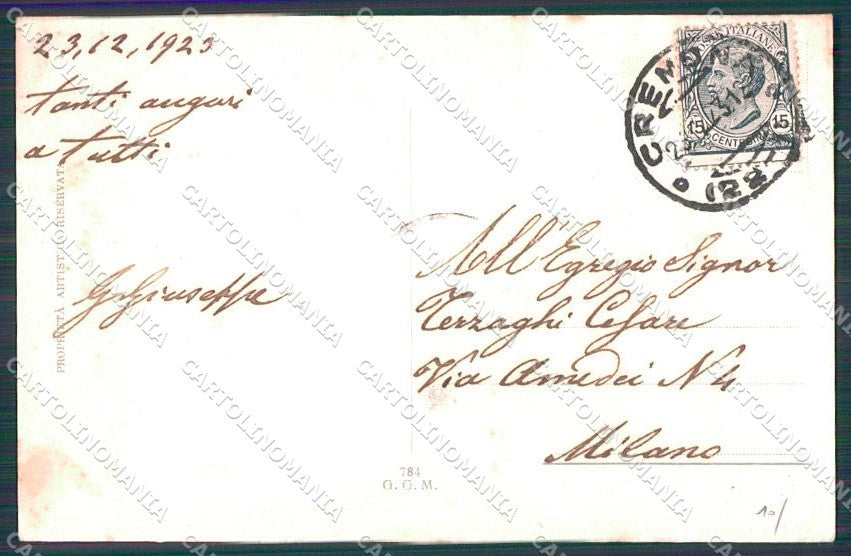 23,12,1923
tanti auguri
a tutti
Giuseppe
PROPRIETÀ ARTISTICA RISERVATA
784
G. G. M.
CREMONA
POSTE ITALIANE
15 15
CENTESIMI
All'Egregio Signor
Terzaghi Cesare
Via Amedei N 4
Milano
10/
CARTOLINOMANIA